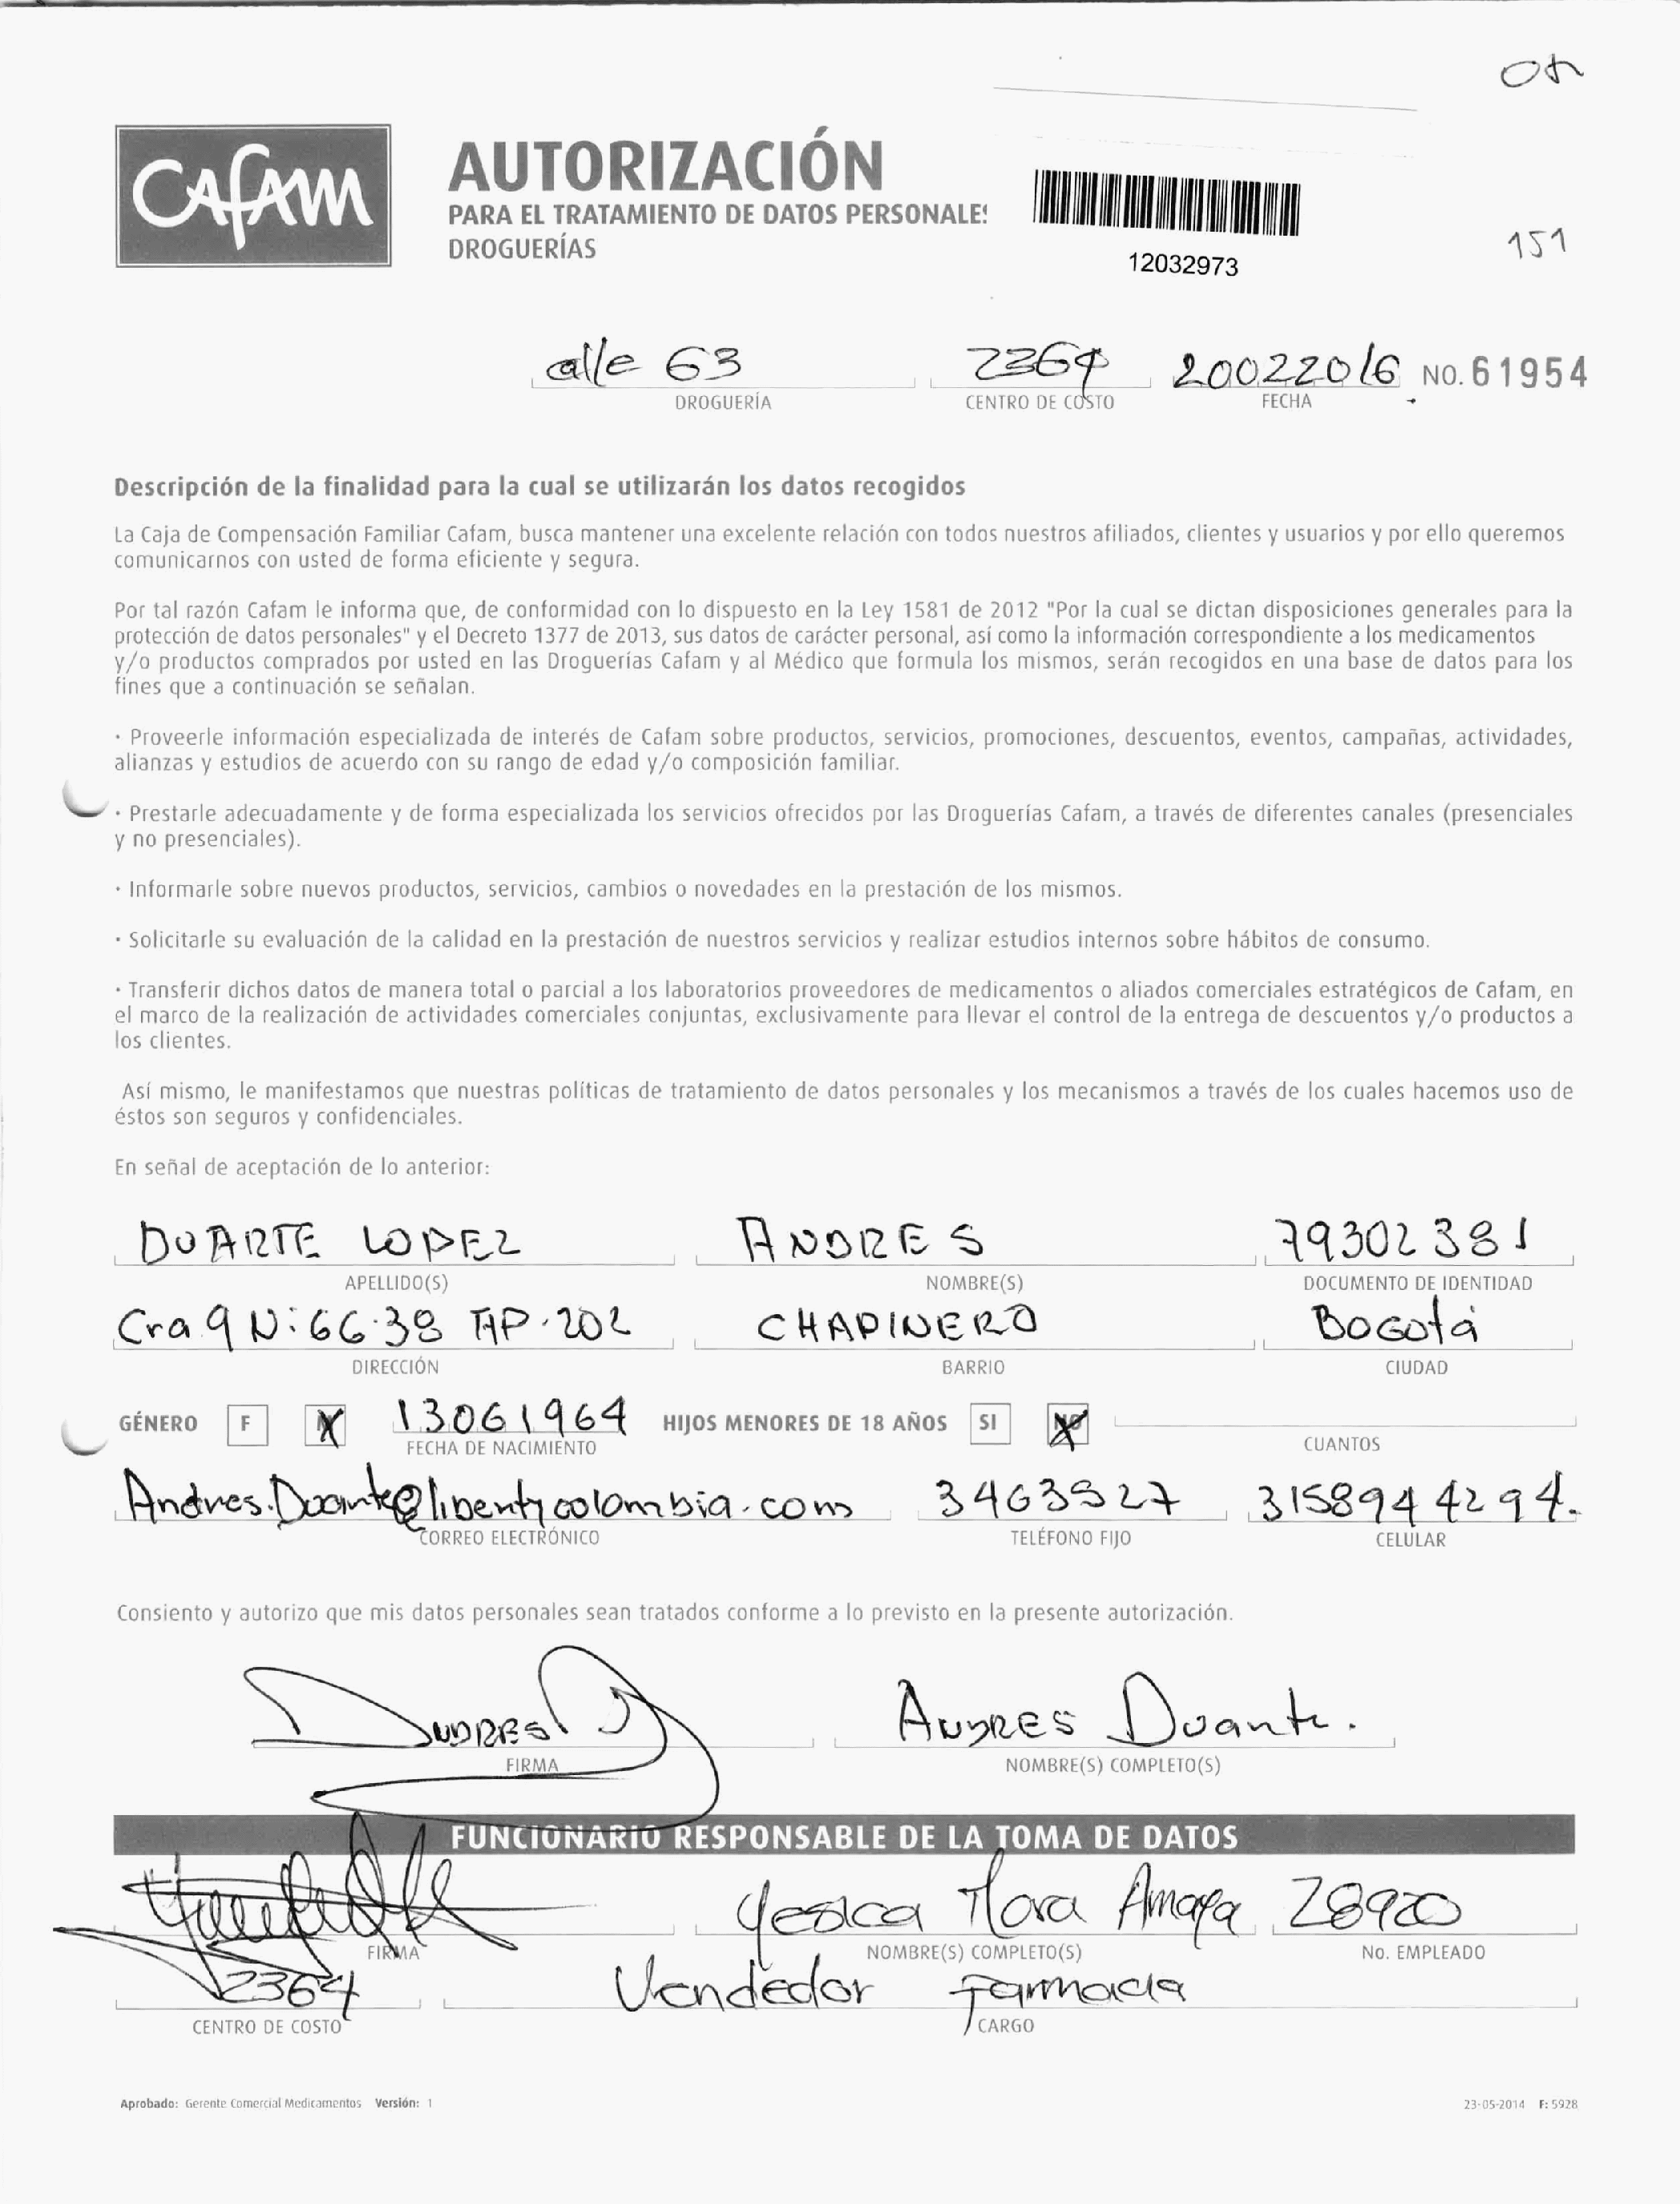 CAFAM
AUTORIZACIÓN
PARA EL TRATAMIENTO DE DATOS PERSONALES
DROGUERÍAS
12032973
151
alle 63 2364 20022016 NO. 61954
DROGUERÍA CENTRO DE COSTO FECHA
Descripción de la finalidad para la cual se utilizarán los datos recogidos
La Caja de Compensación Familiar Cafam, busca mantener una excelente relación con todos nuestros afiliados, clientes y usuarios y por ello queremos
comunicarnos con usted de forma eficiente y segura.
Por tal razón Cafam le informa que, de conformidad con lo dispuesto en la Ley 1581 de 2012 "Por la cual se dictan disposiciones generales para la
protección de datos personales" y el Decreto 1377 de 2013, sus datos de carácter personal, así como la información correspondiente a los medicamentos
y/o productos comprados por usted en las Droguerías Cafam y al Médico que formula los mismos, serán recogidos en una base de datos para los
fines que a continuación se señalan.
· Proveerle información especializada de interés de Cafam sobre productos, servicios, promociones, descuentos, eventos, campañas, actividades,
alianzas y estudios de acuerdo con su rango de edad y/o composición familiar.
· Prestarle adecuadamente y de forma especializada los servicios ofrecidos por las Droguerías Cafam, a través de diferentes canales (presenciales
y no presenciales).
· Informarle sobre nuevos productos, servicios, cambios o novedades en la prestación de los mismos.
· Solicitarle su evaluación de la calidad en la prestación de nuestros servicios y realizar estudios internos sobre hábitos de consumo.
· Transferir dichos datos de manera total o parcial a los laboratorios proveedores de medicamentos o aliados comerciales estratégicos de Cafam, en
el marco de la realización de actividades comerciales conjuntas, exclusivamente para llevar el control de la entrega de descuentos y/o productos a
los clientes.
Así mismo, le manifestamos que nuestras políticas de tratamiento de datos personales y los mecanismos a través de los cuales hacemos uso de
éstos son seguros y confidenciales.
En señal de aceptación de lo anterior:
DUARTE LOPEZ ANDRES 79302381
APELLIDO(S) NOMBRE(S) DOCUMENTO DE IDENTIDAD
Cra 9 N: 66.38 AP.202 CHAPINERO BOGOtá
DIRECCIÓN BARRIO CIUDAD
GÉNERO F X 13061964 HIJOS MENORES DE 18 AÑOS SI NO
FECHA DE NACIMIENTO CUANTOS
Andres.Duarte@libertycolombia.com 3158944294.
CORREO ELECTRÓNICO TELÉFONO FIJO CELULAR
Consiento y autorizo que mis datos personales sean tratados conforme a lo previsto en la presente autorización.
ANDRES ANDRES Duarte.
FIRMA NOMBRE(S) COMPLETO(S)
FUNCIONARIO RESPONSABLE DE LA TOMA DE DATOS
Yesica Mora Amaya 28920
FIRMA NOMBRE(S) COMPLETO(S) No. EMPLEADO
2364 Vendedor Farmacia
CENTRO DE COSTO CARGO
Aprobado: Gerente Comercial Medicamentos Versión: 1 23-05-2014 F: 5928